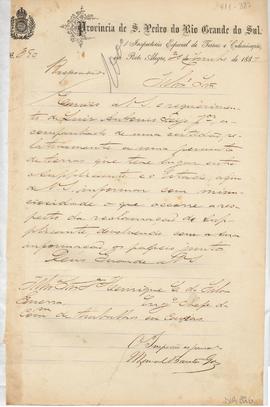 Provincia de S. Pedro do Rio Grande do Sul.
Inspectoria Especial de Terras e Colonisação,
em Porto Alegre, de de 188
Illmo Snr
Remetto a V. S. o requerimen-
to de Luiz Antonio
acompanhado de uma
relativamente a uma permuta
de terras que teve lugar entre
o supplicante e o Estado, afim
de V. S. informar com minu-
ciosidade o que occorre a res-
peito da reclamação do sup-
plicante, devolvendo com a sua
informação os papeis juntos.
Deus Guarde a V. S.
Illmo Snr Henrique C. da Silva
Engº Chefe da
Com. de trabalhos em Caxias
O Inspector Especial
Manoel